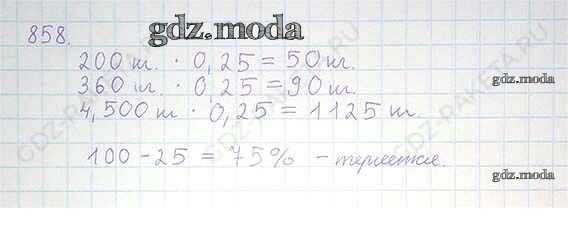 858. gdz.moda
200 т. · 0,25 = 50 т.
360 т. · 0,25 = 90 т. gdz.moda
4,500 т · 0,25 = 1125 т.
100 - 25 = 75% - теряется.
gdz.moda
gdz.moda
GDZ-RAKETA.RU
GDZ-RAKETA.RU
GDZ-RAKETA.RU